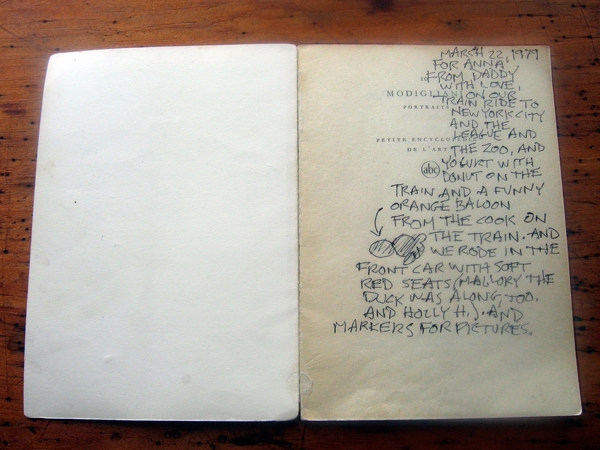 MARCH 22, 1979
FOR ANNA
FROM DADDY
WITH LOVE,
MODIGLIANI ON OUR
TRAIN RIDE TO
PORTRAITS
NEW YORK CITY
AND THE
LEAGUE AND
PETITE ENCYCLOPÉDIE
DE L'ART THE ZOO, AND
YOGURT WITH
abc DONUT ON THE
TRAIN AND A FUNNY
ORANGE BALOON
FROM THE COOK ON
THE TRAIN. AND
WE RODE IN THE
FRONT CAR WITH SOFT
RED SEATS (MALLORY THE
DUCK WAS ALONG, TOO.
AND HOLLY H.) AND
MARKERS FOR PICTURES.